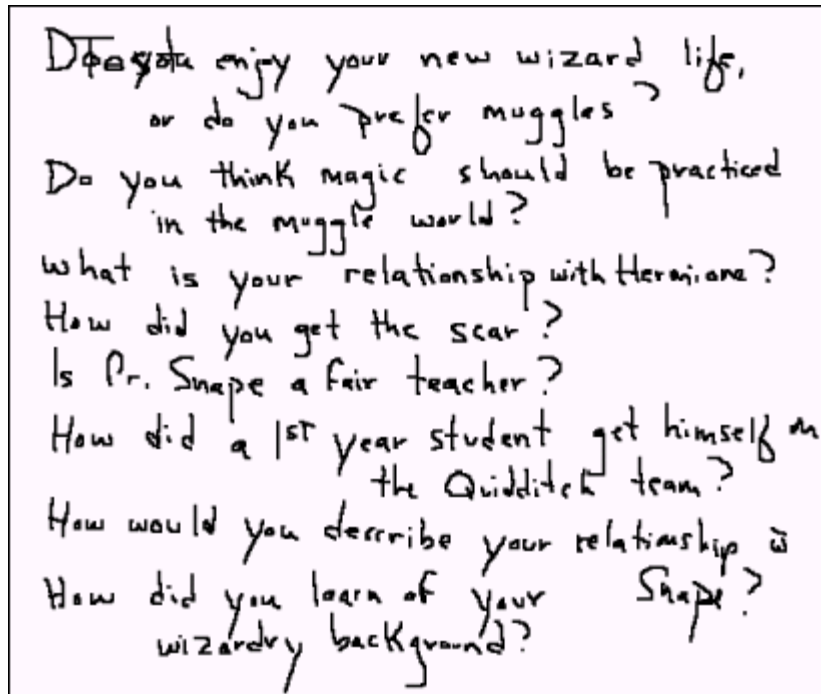 Do you enjoy your new wizard life,
or do you prefer muggles?
Do you think magic should be practiced
in the muggle world?
What is your relationship with Hermione?
How did you get the scar?
Is Pr. Snape a fair teacher?
How did a 1st year student get himself on
the Quidditch team?
How would you describe your relationship w̄
Snape?
How did you learn of your
wizardry background?